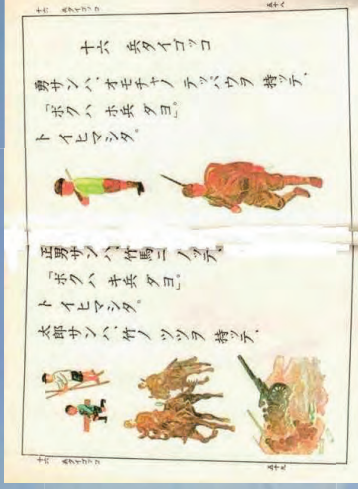 十六 兵タイゴッコ
五十八
十六 兵タイゴッコ
勇サンハ、オモチャノ テッパウヲ 持ッテ、
「ボクハ ホ兵 ダヨ。」
ト イヒマシタ。
正男サンハ、竹馬ニ ノッテ、
「ボクハ キ兵 ダヨ。」
ト イヒマシタ。
太郎サンハ、竹ノ ツツヲ 持ッテ、
十六 兵タイゴッコ
五十九